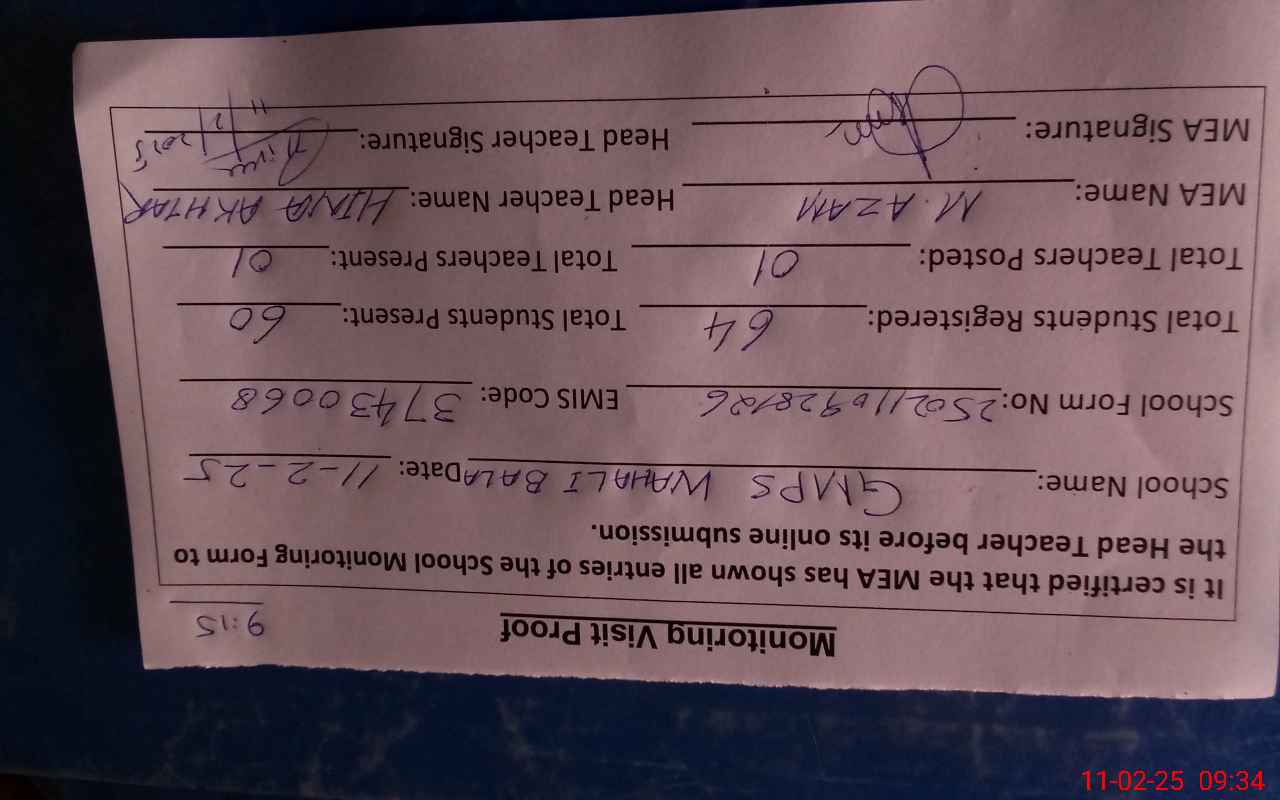 Monitoring Visit Proof 9:15
It is certified that the MEA has shown all entries of the School Monitoring Form to
the Head Teacher before its online submission.
School Name: GMPS WAHALI BALA Date: 11-2-25
School Form No: EMIS Code: 37430068
Total Students Registered: 64 Total Students Present: 60
Total Teachers Posted: 01 Total Teachers Present: 01
MEA Name: M. AZAM Head Teacher Name: HINA AKHTAR
MEA Signature: Head Teacher Signature: 11/2/2025
11-02-25 09:34